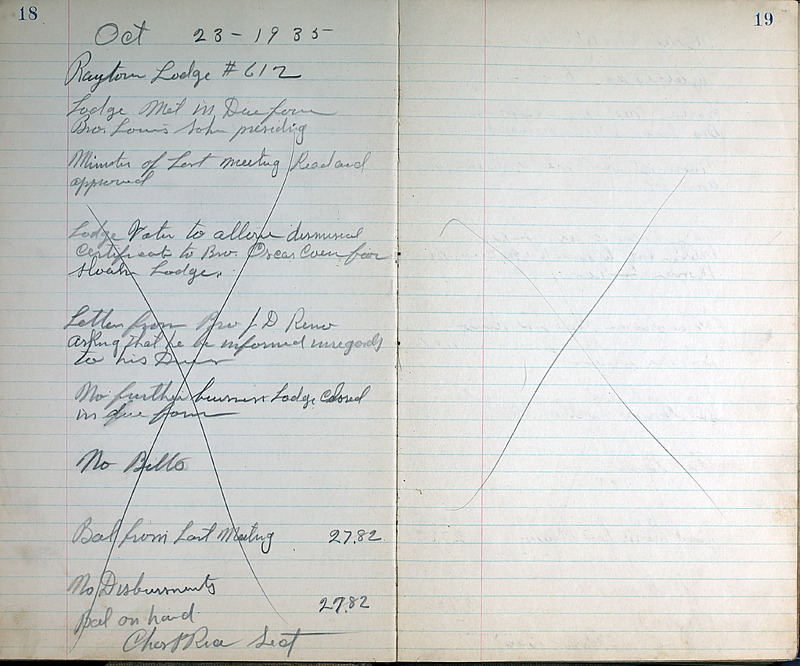 18
Oct 23-1935
Raytown Lodge #612
Lodge Met in Due form
Bro. Louis presiding
Minutes of Last meeting Read and
approved
Lodge Votes to allow dismissal
Certificate to Bro. Oscar from
Lodge.
Letter from Bro J. D Reno
asking that he be informed in regards
to his Dues
No further business Lodge Closed
in due form
No Bills
Bal from Last Meeting 27.82
No Disbursments
Bal on hand 27.82
Chas Rice Sect
19